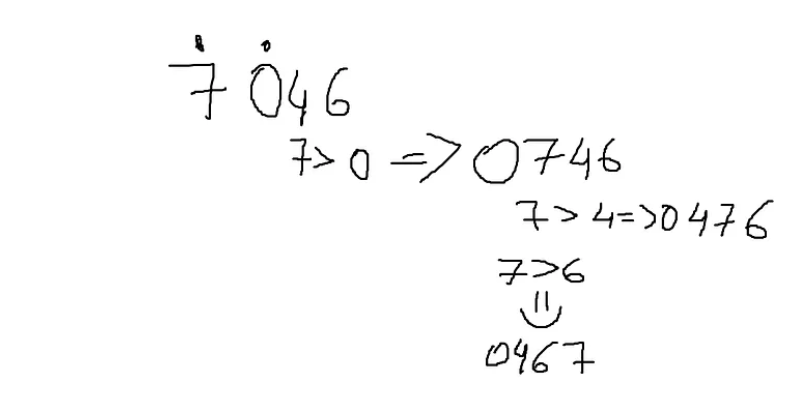 7 046
7 > 0 => 0746
7 > 4 => 0 476
7 > 6
=>
0467